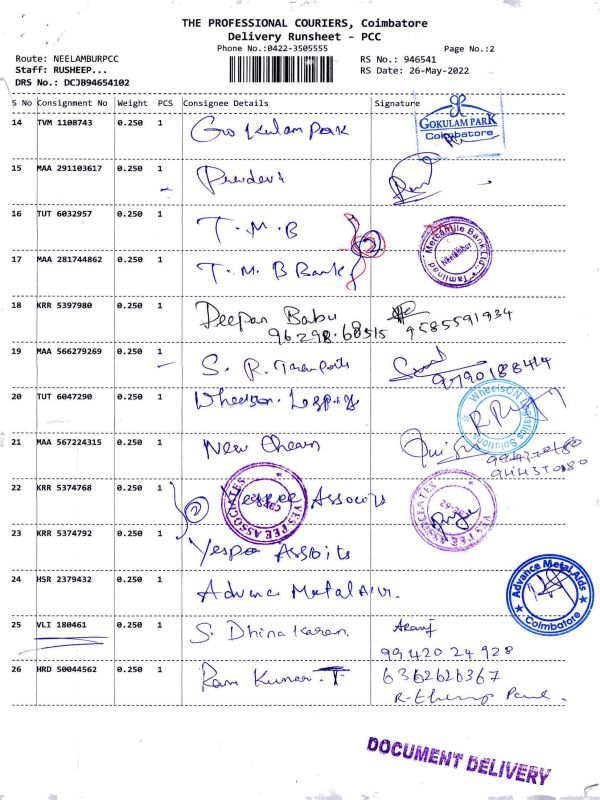 THE PROFESSIONAL COURIERS, Coimbatore
Delivery Runsheet - PCC
Phone No.:0422-3505555
Page No.:2
Route: NEELAMBURPCC
RS No.: 946541
Staff: RUSHEEP...
RS Date: 26-May-2022
DRS No.: DCJB94654102
S No Consignment No Weight PCS Consignee Details Signature
14 TVM 1108743 0.250 1 Gokulam Park
GOKULAM PARK
Coimbatore
15 MAA 291103617 0.250 1
16 TUT 6032957 0.250 1 T.M.B
Tamilnad Mercantile Bank Ltd.
Neelambur
17 MAA 281744862 0.250 1 T.M.B Bank
18 KRR 5397980 0.250 1 Deepan Babu
96298.60515 9585591934
19 MAA 566279269 0.250 1 S.R. Transports
9790188414
20 TUT 6047290 0.250 1
WheelsON Logistics Solutions
21 MAA 567224315 0.250 1 New
22 KRR 5374768 0.250 1
YES PEE ASSOCIATES
YES PEE ASSOCIATES
23 KRR 5374792 0.250 1
24 HSR 2379432 0.250 1
Advance Metal Aids
Coimbatore
25 VLI 180461 0.250 1 S. Dhinakaran
99420 24 928
26 HRD 50044562 0.250 1 Ram Kumar. T
6362626367
DOCUMENT DELIVERY